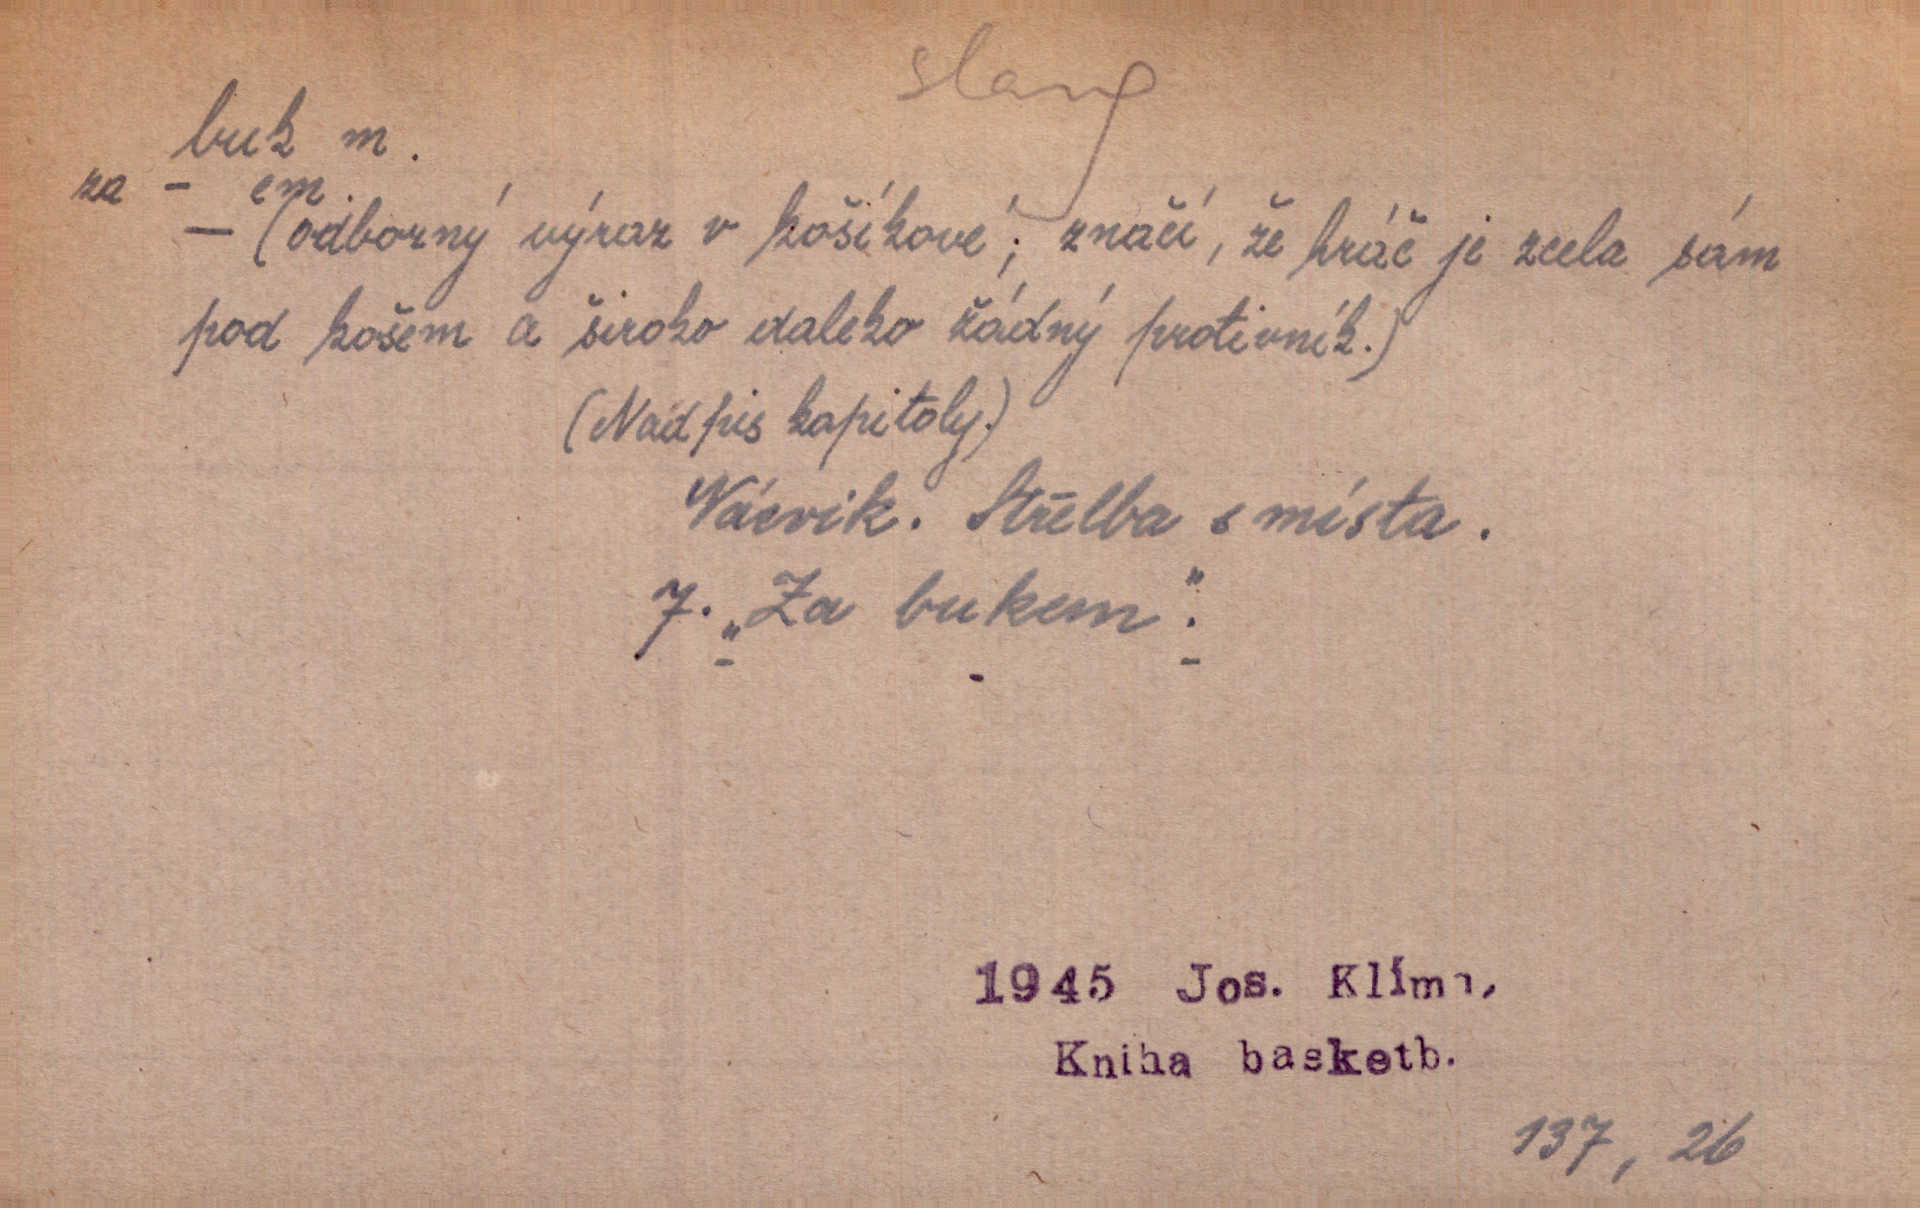 slang
buk m.
za - em
— (odborný výraz v košíkové; značí, že hráč je zcela sám
pod košem a široko daleko žádný protivník.)
(Nadpis kapitoly.)
Nácvik. Střelba s místa.
7. „Za bukem“.
1945 Jos. Klíma,
Kniha basketb.
137, 26